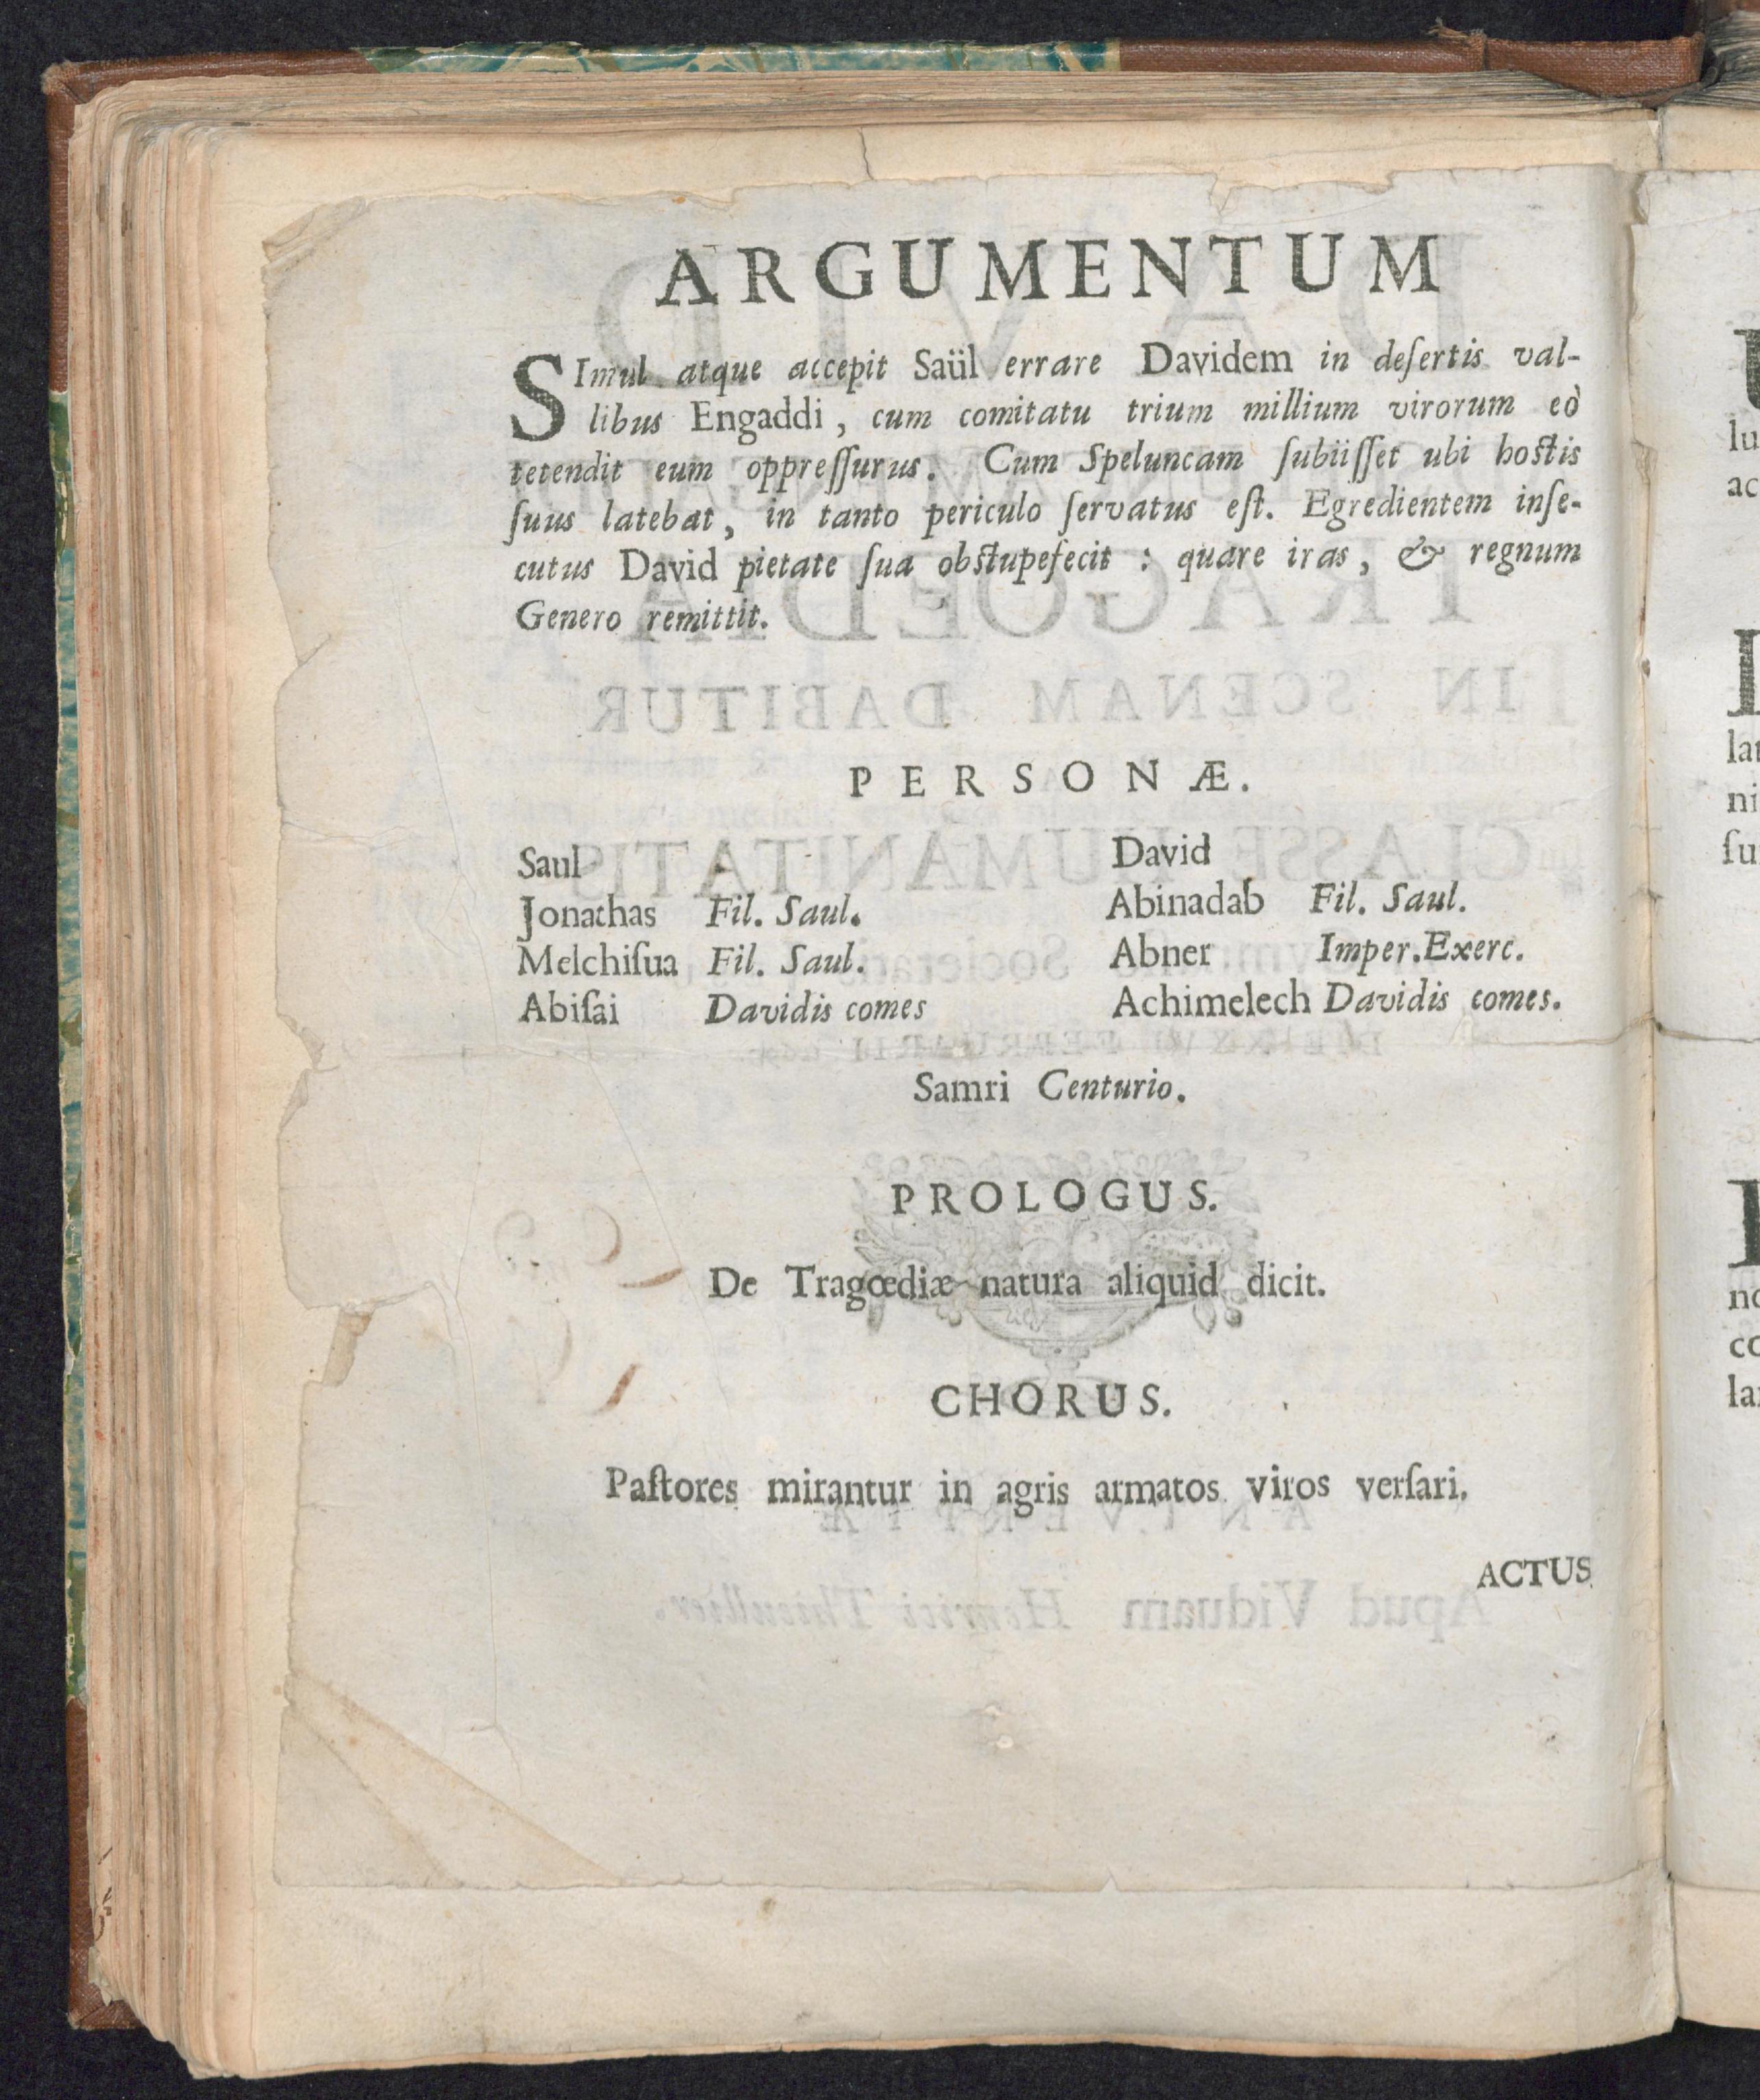 ARGUMENTUM
SImul atque accepit Saül errare Davidem in deſertis val-
libus Engaddi, cum comitatu trium millium virorum eò
tetendit eum oppreſſurus. Cum Speluncam ſubiiſſet ubi hoſtis
ſuus latebat, in tanto periculo ſervatus eſt. Egredientem inſe-
cutus David pietate ſua obſtupefecit : quare iras, & regnum
Genero remittit.
PERSONÆ.
Saul David
Jonathas Fil. Saul. Abinadab Fil. Saul.
Melchiſua Fil. Saul. Abner Imper. Exerc.
Abiſai Davidis comes Achimelech Davidis comes.
Samri Centurio.
PROLOGUS.
De Tragœdiæ natura aliquid dicit.
CHORUS.
Paſtores mirantur in agris armatos viros verſari.
ACTUS